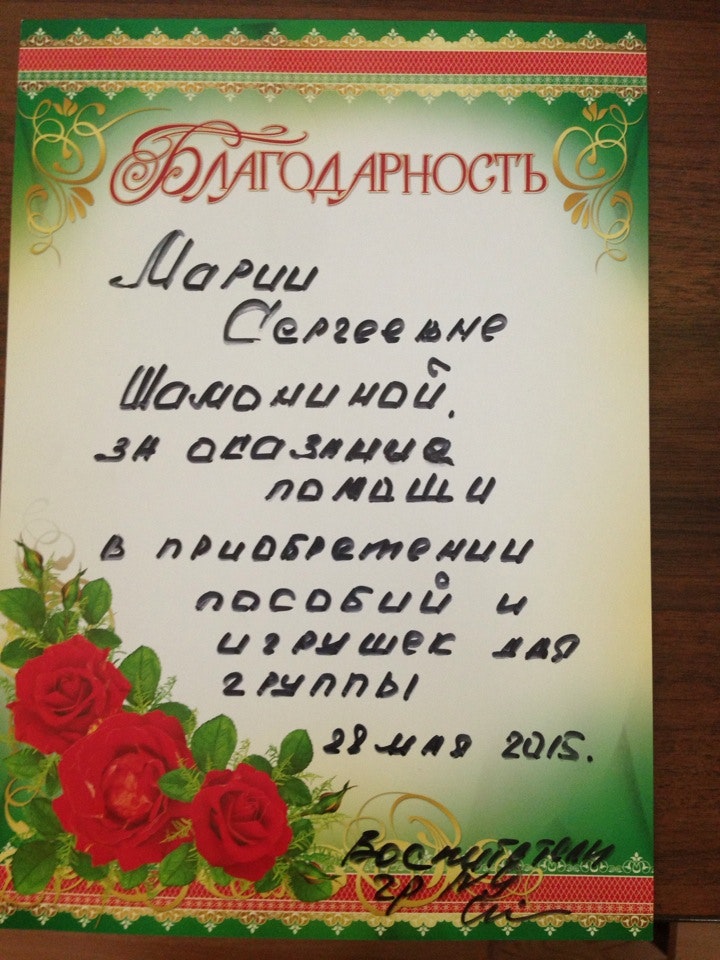 Благодарность
Марии
Сергеевне
Шамониной,
за оказание
помощи
в приобретении
пособий и
игрушек для
группы
28 мая 2015.
Воспитатели
гр №4